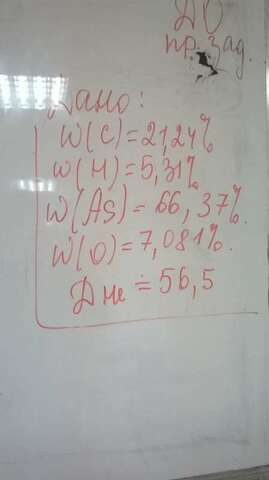 ДО
пр. зад.
Дано:
W(C)=21,24%
W(H)=5,31%
W(As)=66,37%.
W(O)=7,081%.
Д не = 56,5